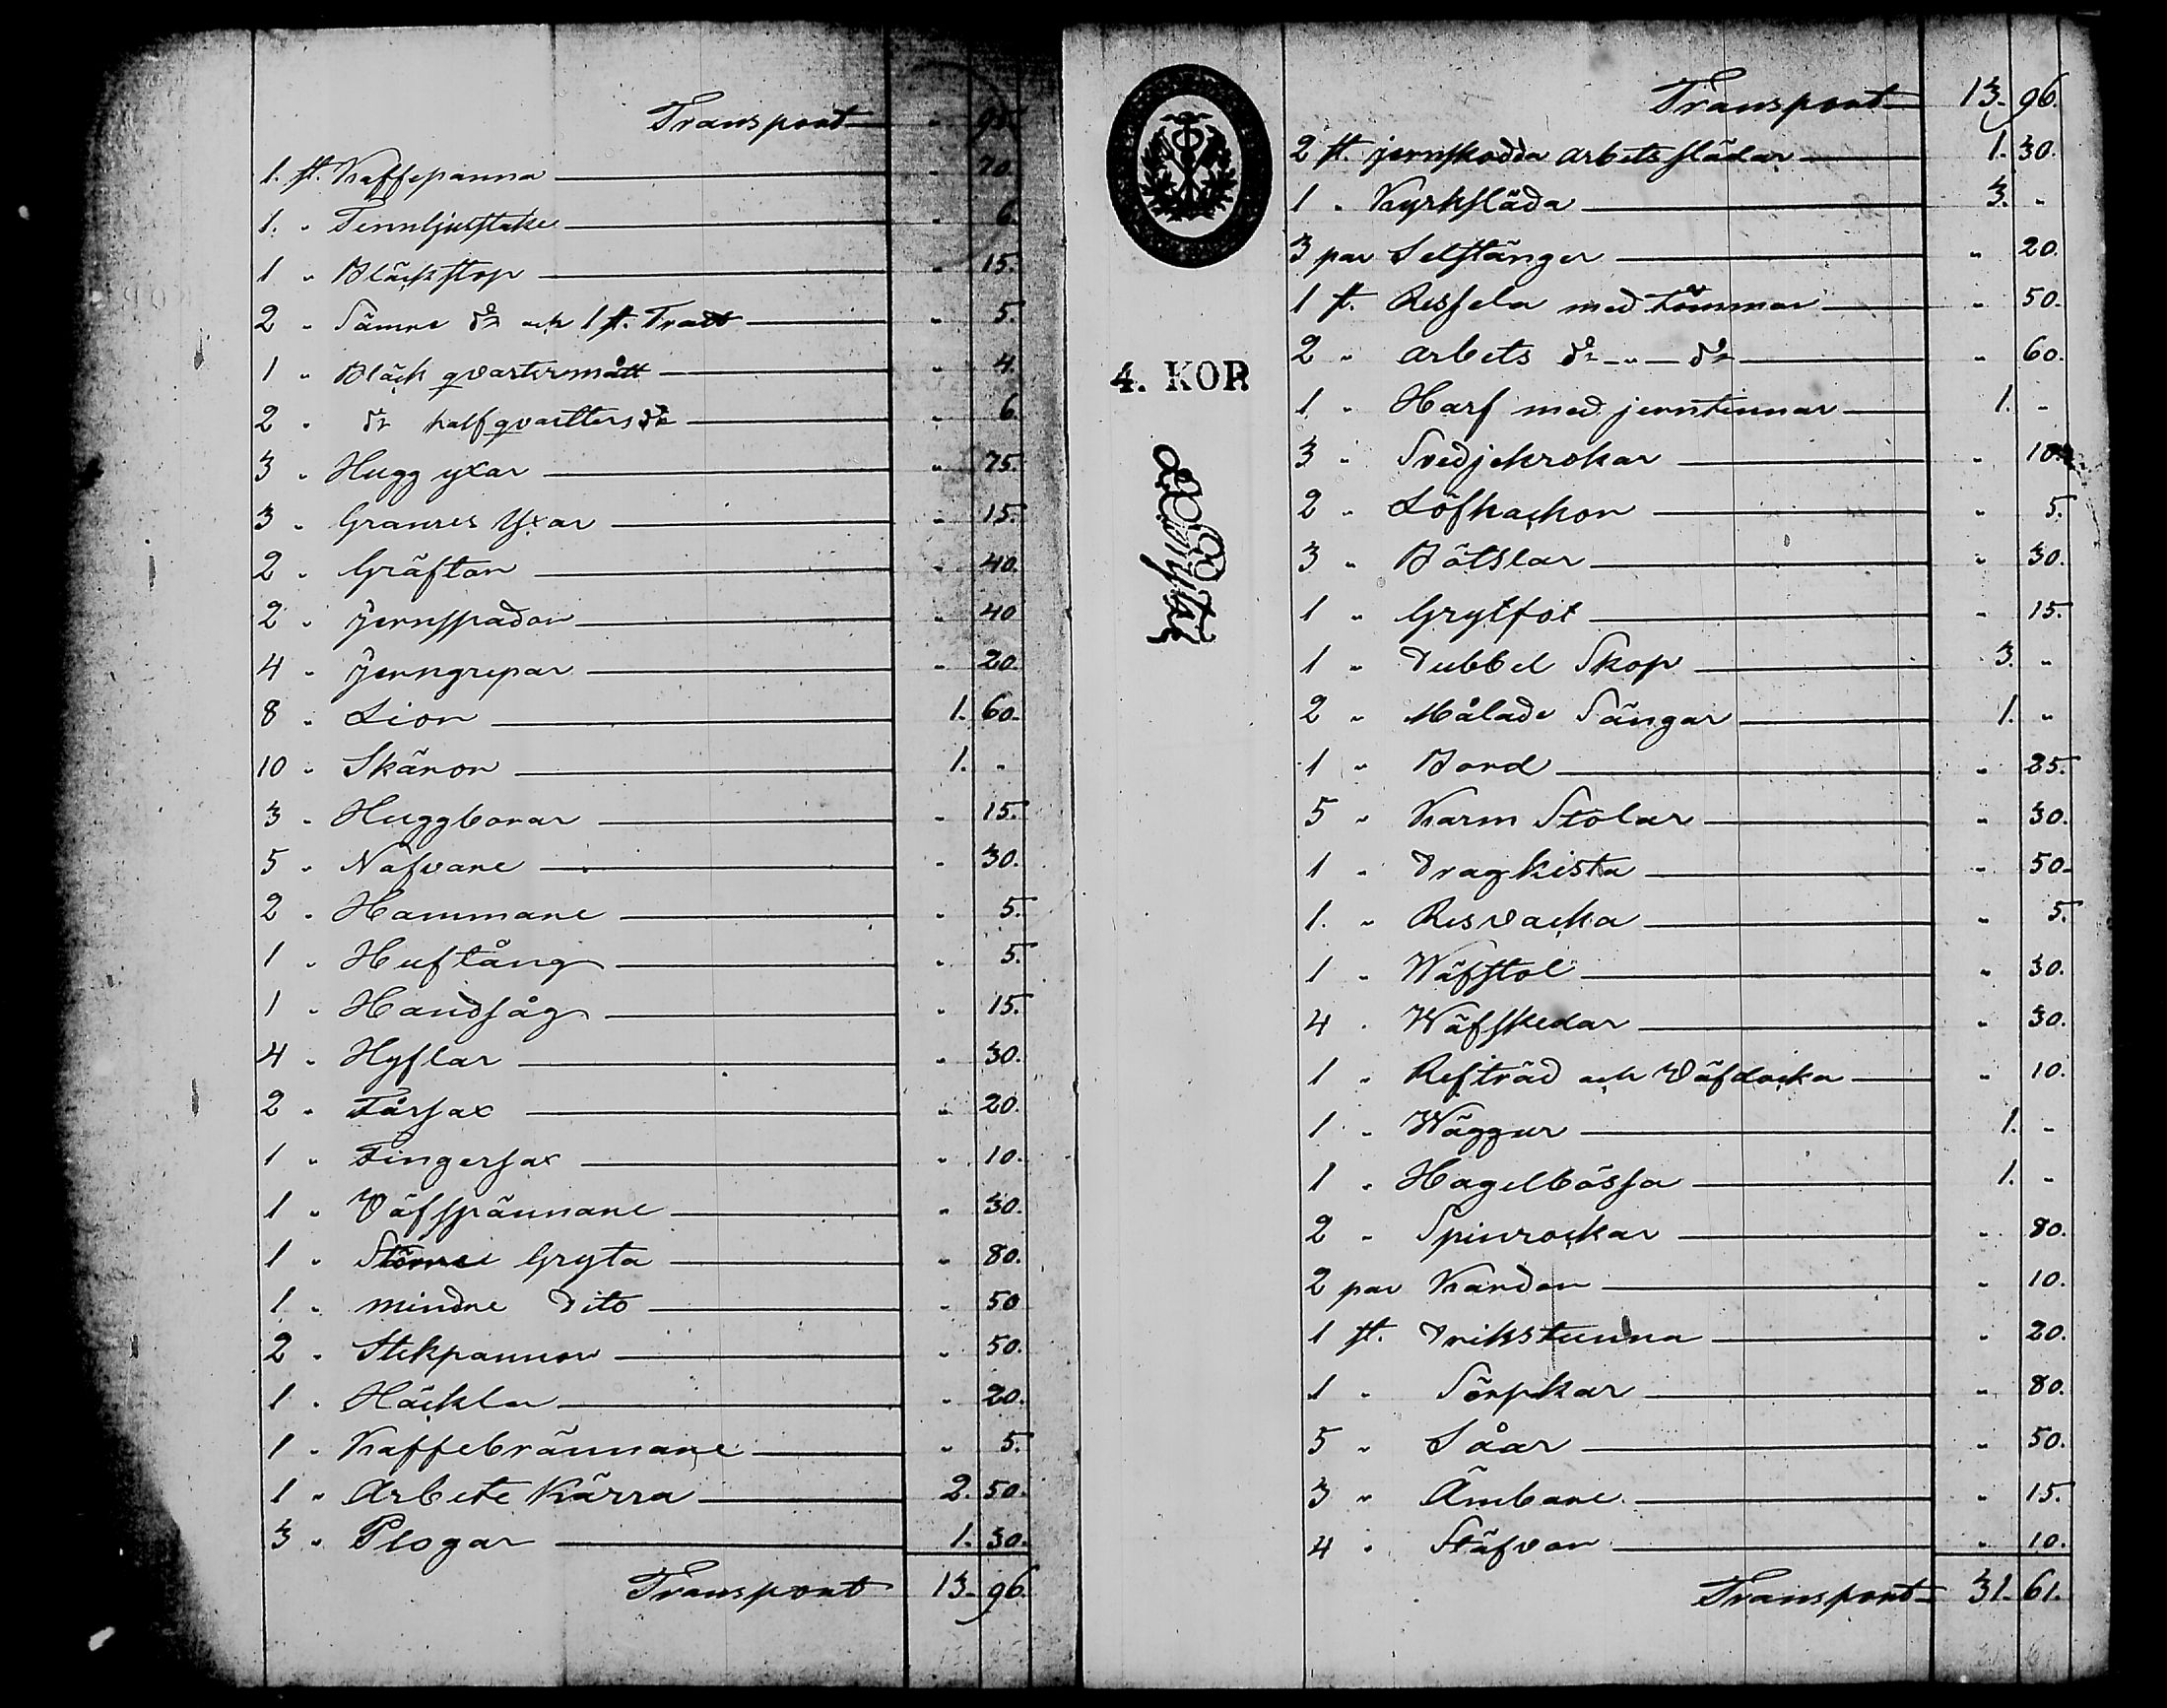 Transport " 95.
1. st. Kaffepanna " 20.
1. " Tennljusstake " 6.
1 " Bläckstop " 15.
2 " Sämre d:o och 1 st. Tratt " 5.
1 " Bläck qvartersmått " 4.
2 " d:o half qvarters d:o " 6.
3 " Hugg yxar " 75.
3 " Granres Yxar " 15.
2 " Gräftor " 40.
2 " Jernspador " 40
4 " Jerngrepar " 20.
8 " Lior 1. 60.
10 " Skäror 1. "
3 " Huggborar " 15.
5 " Näfvare " 30.
2 " Hammare " 5.
1 " Huftång " 5.
1 " Handsåg " 15.
4 " Hyflar " 30.
2 " Fårsax " 20.
1 " Fingersax " 10.
1 " Väfspännare " 30.
1 " Större Gryta " 80.
1 " mindre dito " 50
2 " Stekpannor " 50.
1 " Häckla " 20.
1 " Kaffebrännare " 5.
1 " Arbete Kärra 2. 50.
3 " Plogar 1. 30.
Transport 13. 96.
4. KOP.
Transport 13. 96.
2 st. jernskodda arbetsslädar 1. 30.
1 " Kyrksläda 3. "
3 par Selstänger " 20.
1 st. Ressela med tömmar " 50.
2 " arbets d:o " d:o " 60.
1 " Harf med jerntinnar 1. "
3 " Svedjekrokar " 10.
2 " Löfhackor " 5.
3 " Bötslar " 30.
1 " Grytfot " 15.
1 " Dubbel Skåp 3. "
2 " Målade Sängar 1. "
1 " Bord " 25.
5 " Karm Stolar " 30.
1 " Dragkista " 50.
1. " Resvacka " 5.
1 " Wäfstol " 30.
4 " Wäfskedar " 30.
1 " Refträd och Väfdocka " 10.
1 " Wäggur 1. "
1 " Hagelbössa 1. "
2 " Spinrockar " 80.
2 par Kardor " 10.
1 st. Drikstunna " 20.
1 " Sörpkar " 80.
5 " Såar " 50.
3 " Ämbare " 15.
4 " Stäfvor " 10.
Transport 31. 61.